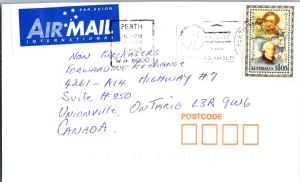 PAR AVION
AIR MAIL
INTERNATIONAL
PERTH
W.A. 6000
AUSTRALIA
NON PURCHASERS
FORWARDING EXCHANGE
4261-A14 HIGHWAY #7
SUITE #850
UNIONVILLE, ONTARIO L3R 9W6
CANADA.
POSTCODE